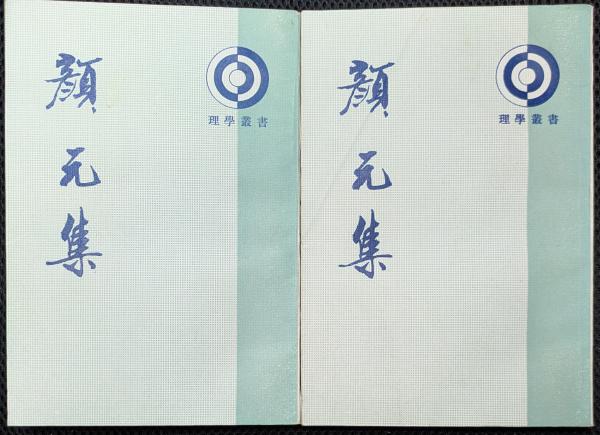 顏元集
理學叢書
顏元集
理學叢書